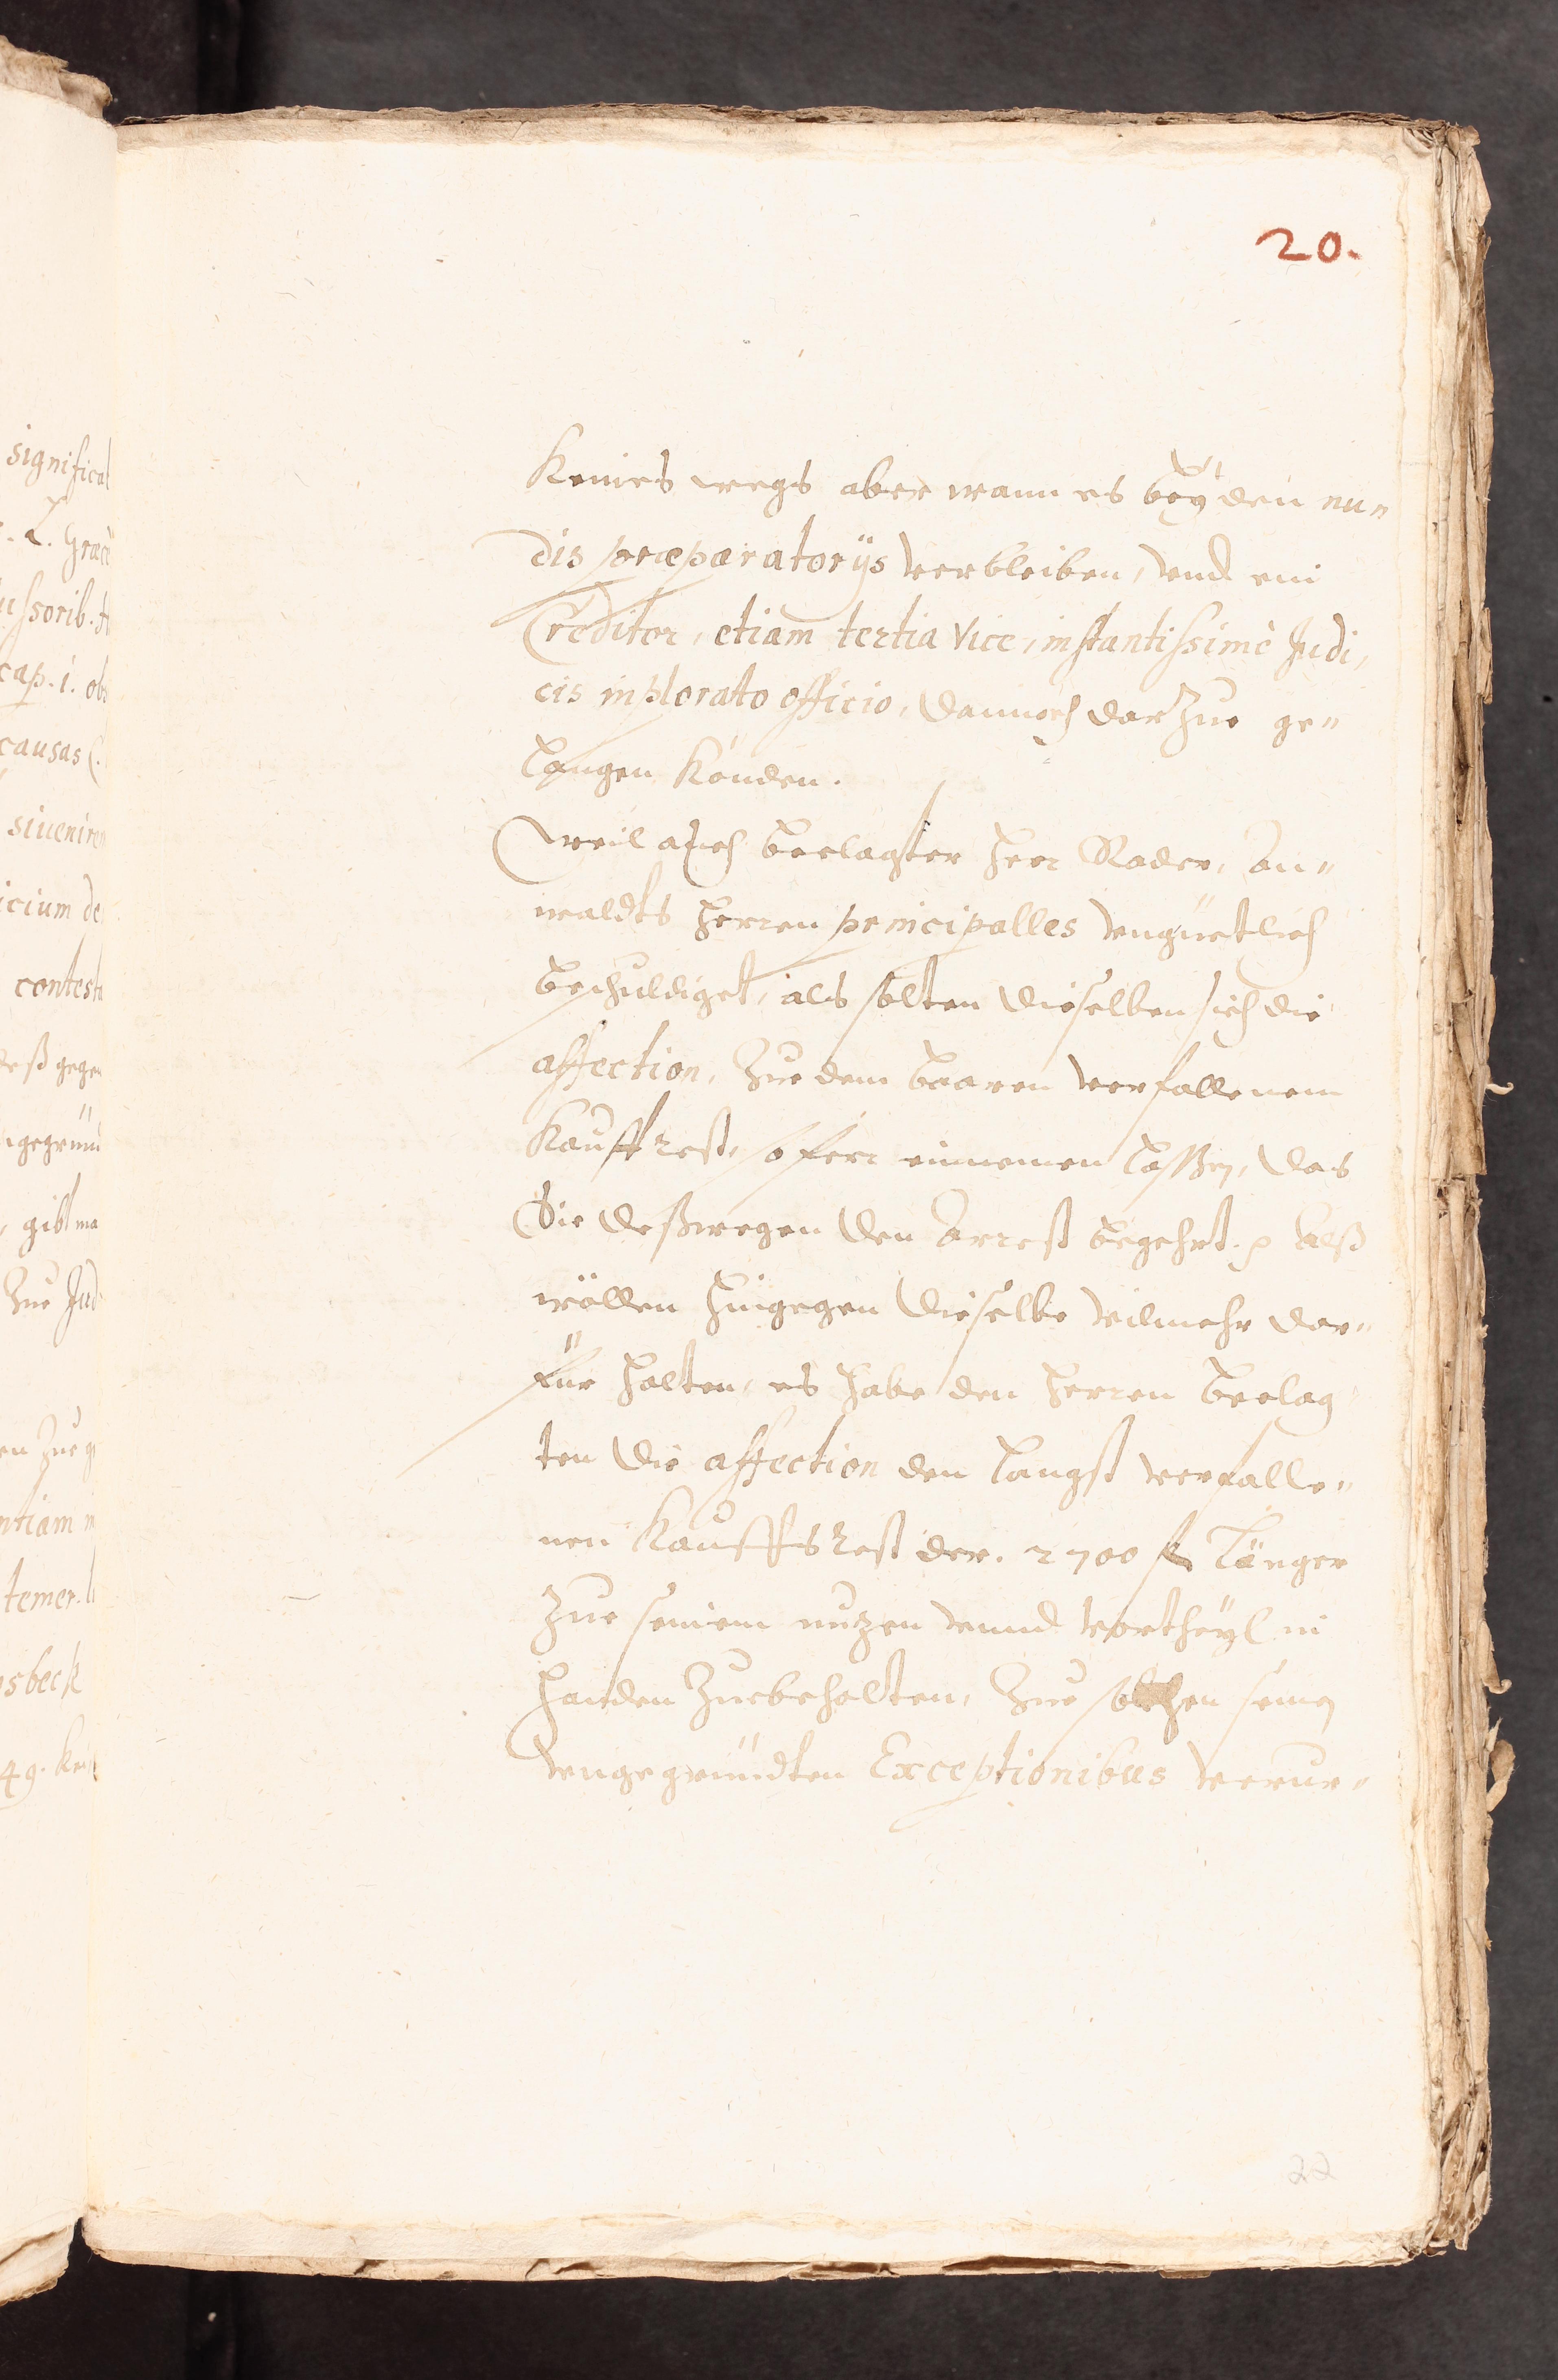 significat
L. Graecè
ussorib.
cap. 1. ob
causas C.
siuenire
icium de
contest
deß gegen
ngegründ
gibt ma
Zue Jud
en Zue g
ntiam in
temer. li
sbeck
49.
20.
Keines wegs aber wann es beÿ den nu„
dis præparatorijs verbleiben, vnd ein
Creditor, etiam tertia vice, instantissimè Judi„
cis implorato officio, dannoch darzue ge„
langen könden.
Weil auch beclagter Herr Rader, An„
waldts Herren principalles vngüetlich
beschuldiget, als solten dieselben sich die
affection, Zue dem baaren verfallenem
Kauffrest, so ferr einnemen lassen, das
Sie deßwegen den Arrest begehrt. Alß
wöllen hingegen dieselbe vilmehr dar„
für halten, es habe den Herren beclag
ten die affection den langst verfalle„
nen Kauffsrest der. 2700 fl länger
Zue seinem nuzen vnnd vortheyl in
handen Zuebehalten, Zue solchen seinen
vngegründten Exceptionibus verur„
22